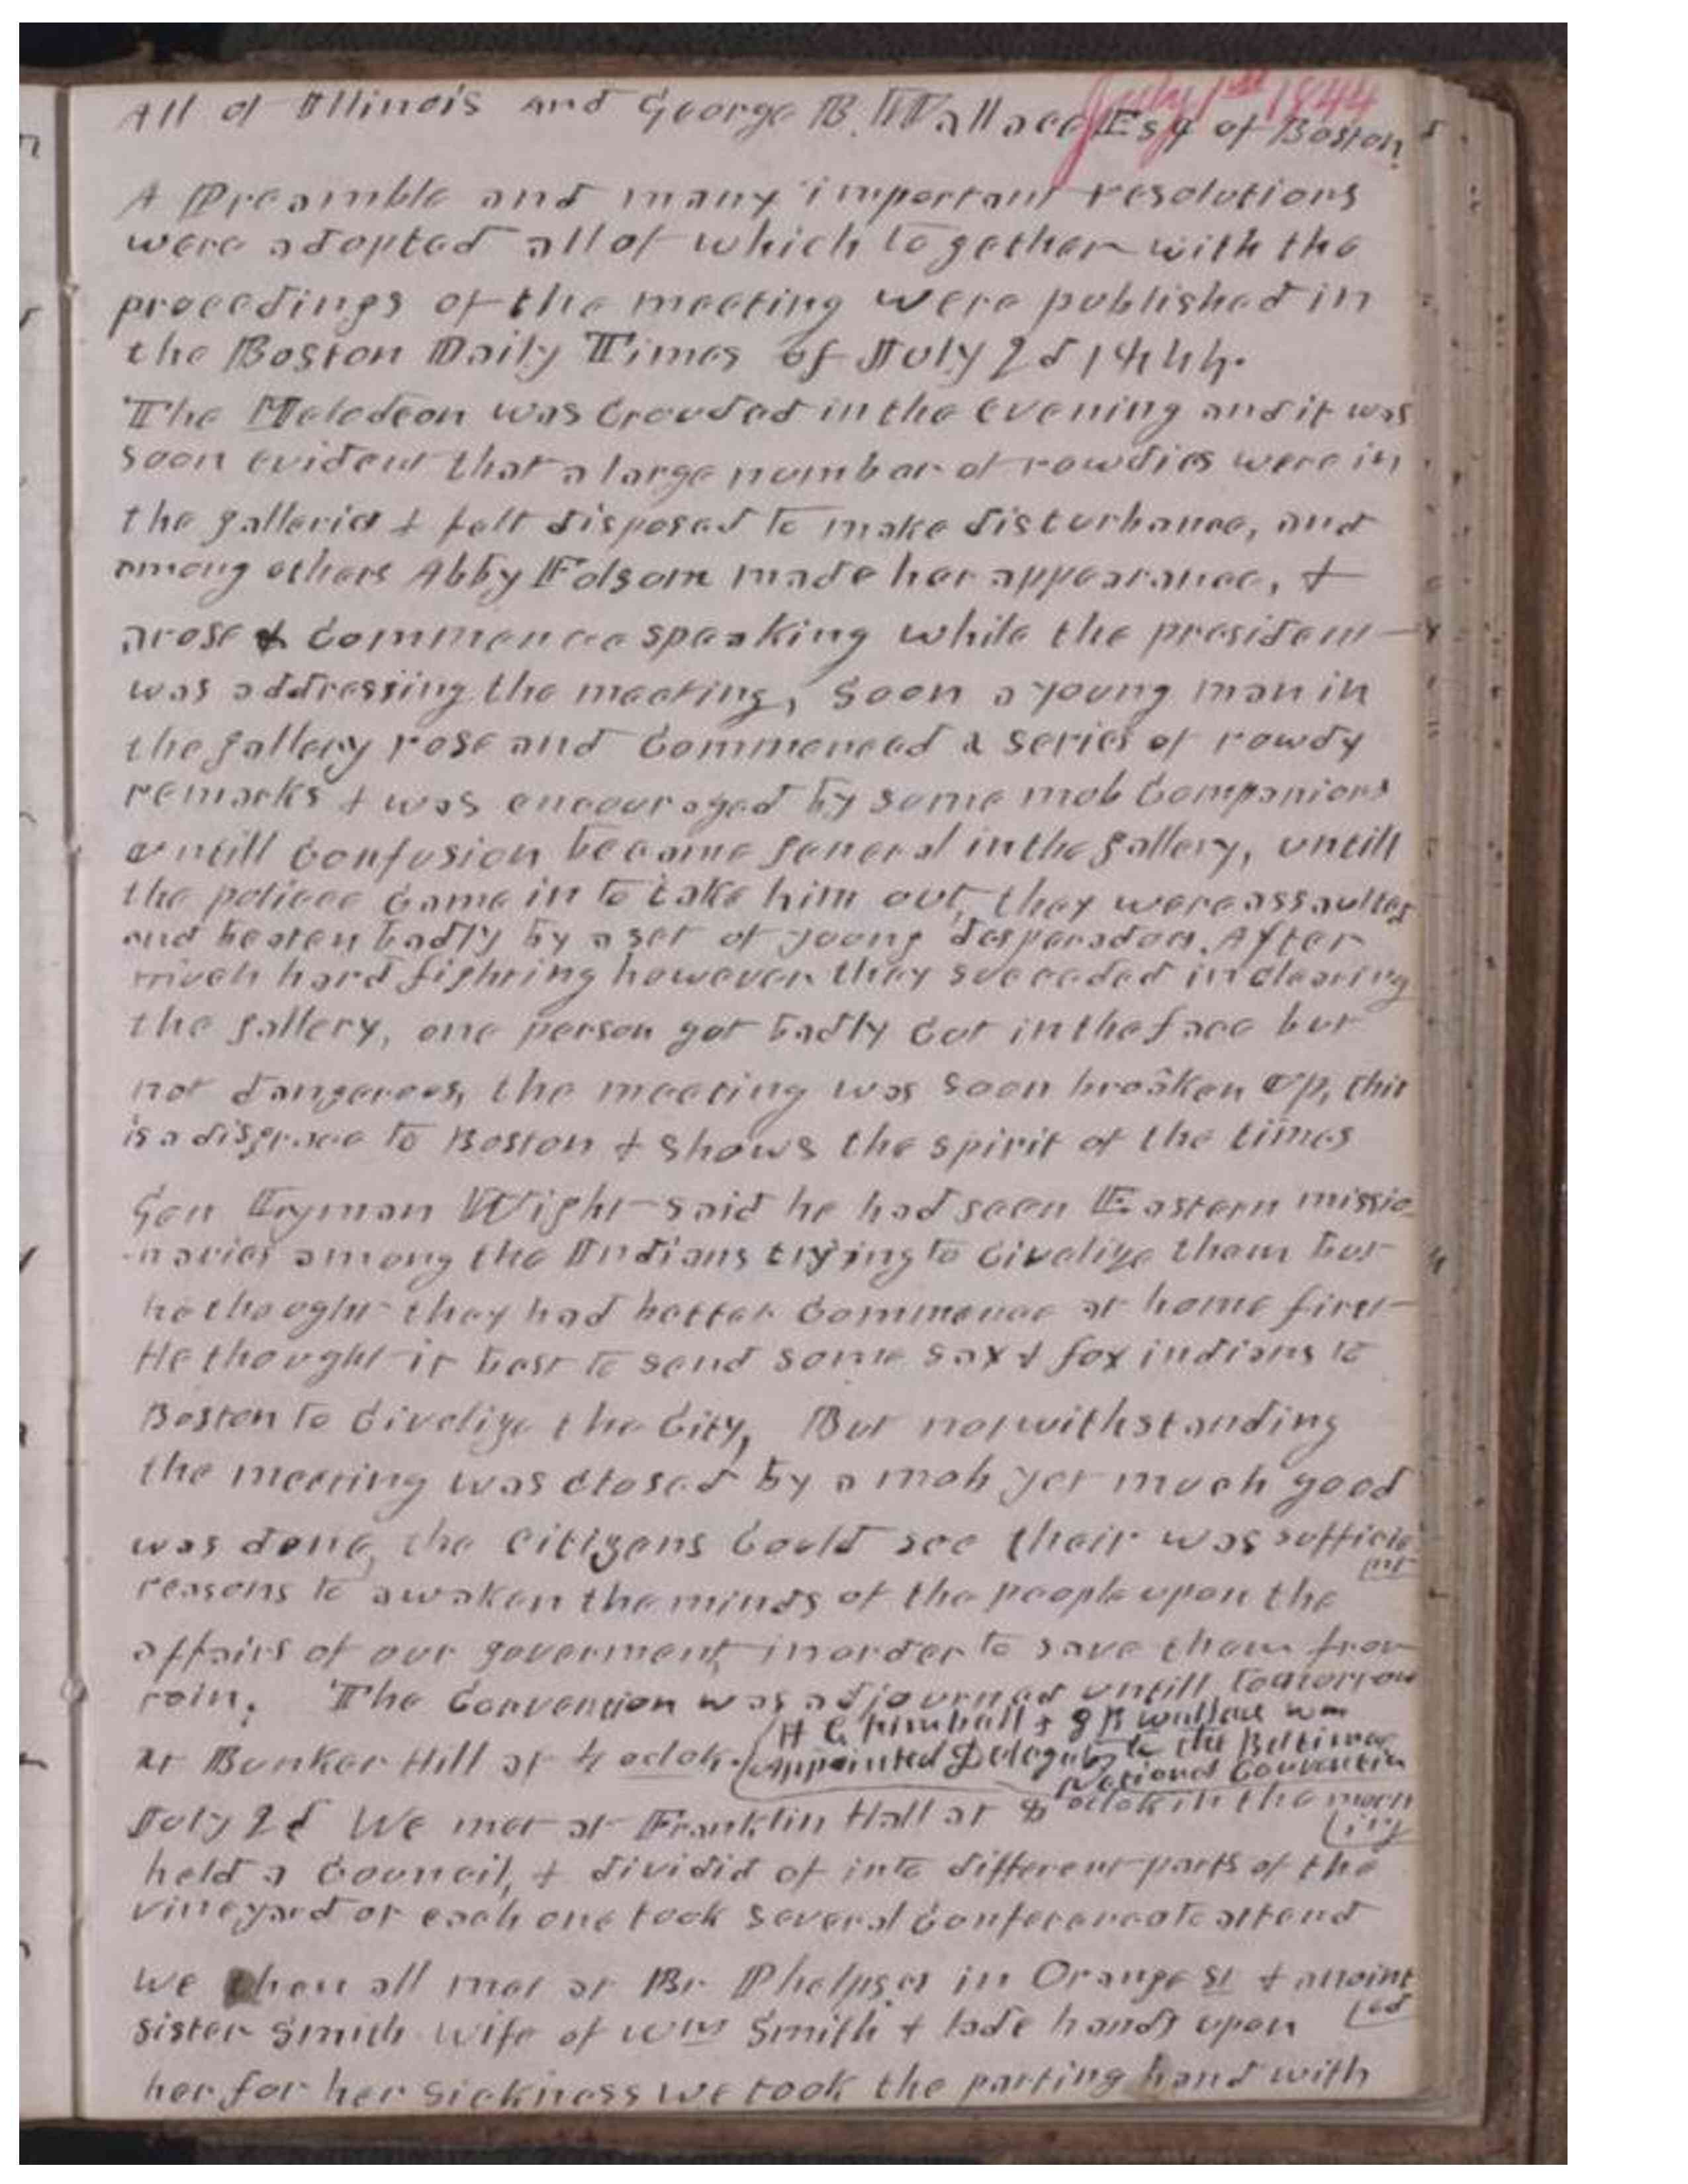 July 1st 1844
All of Illinois and George B. Wallace Esq of Boston.
A Preamble and many important resolutions
were adopted all of which together with the
procedings of the meeting were published in
the Boston Daily Times of July 2d 1844.
The Melodeon was Crouded in the evening and it was
soon evident that a large number of rowdies were in
the galleries & felt disposed to make disturbance, and
among others Abby Folsom made her appearance, &
arose & Commence speaking while the president
was addressing the meeting, Soon a young man in
the gallery rose and Commenced a series of rowdy
remarks & was encouraged by some mob Companions
untill Confusion became general in the gallery, untill
the policee Came in to take him out, they were assaulted
and beaten badly by a set of young desperadoes. After
much hard fighting however they succeeded in clearing
the gallery, one person got badly Cut in the face but
not dangerees, the meeting was soon broaken up, this
is a disgrace to Boston & shows the spirit of the times
Gen Lyman Wight said he had seen Eastern missio
-naries among the Indians trying to Civelize them but
he thought they had better Commence at home first
He thought it best to send some sax & fox indians to
Boston to Civelize the City, But notwithstanding
the meeting was closed by a mob yet much good
was done, the citizens Could see their was sufficie
ent
reasons to awaken the minds of the people upon the
affairs of our goverment, in order to save them from
ruin. The Convention was adjourned untill tomorrow
H C Kimball & G B Wallace was
at Bunker Hill at 4 oclok. appointed Delegates to the Beltimore
National Convention
July 2d We met at Franklin Hall at 8 oclok in the morn
ing
held a Council, & dividid of into different parts of the
vineyard or each one took several Conferences to attend
We then all met at Br Phelpses in Orange St & anoint
ed
sister Smith wife of Wm Smith & lade hands upon
her for her sickness we took the parting hand with